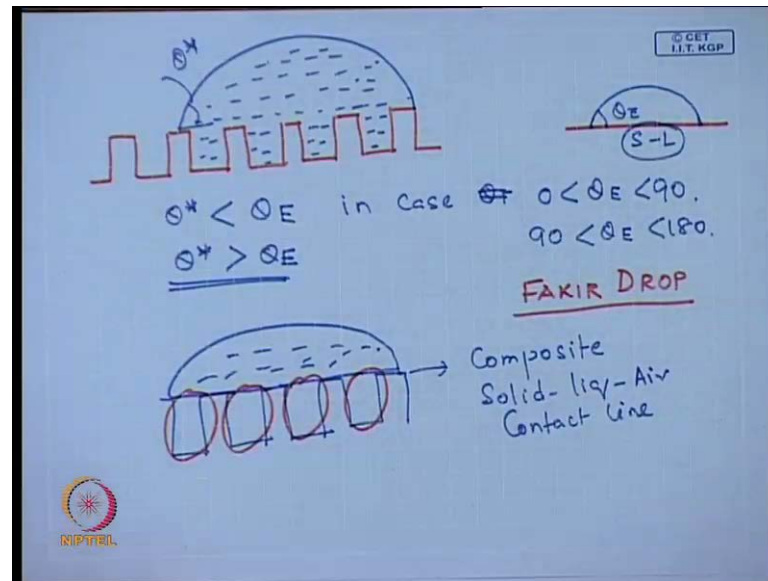 © CET
I.I.T. KGP
θ*
θE
S-L
θ* < θE in case 0 < θE < 90.
θ* > θE 90 < θE < 180.
FAKIR DROP
Composite
Solid-liq-Air
Contact line
NPTEL